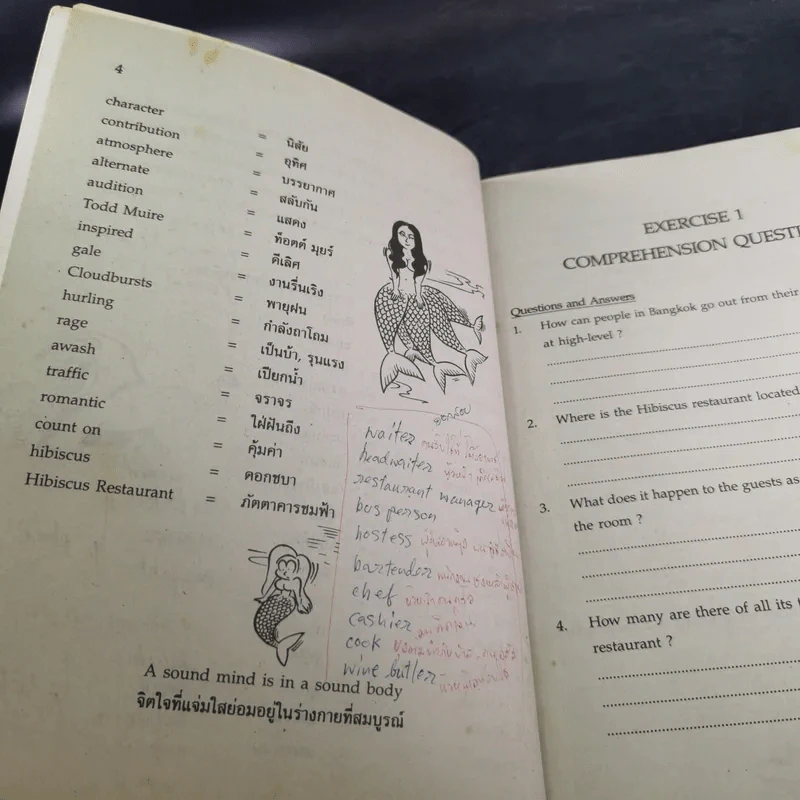 4
character = นิสัย
contribution = อุทิศ
atmosphere = บรรยากาศ
alternate = สลับกัน
audition = แสดง
Todd Muire = ท็อตต์ มุยร์
inspired = ดีเลิศ
gale = งานรื่นเริง
Cloudbursts = พายุฝน
hurling = กำลังถาโถม
rage = เป็นบ้า, รุนแรง
awash = เปียกน้ำ
traffic = จราจร
romantic = ใฝ่ฝันถึง
count on = คุ้มค่า
hibiscus = ดอกชบา
Hibiscus Restaurant = ภัตตาคารชมฟ้า
waiter
headwaiter
restaurant manager
bus person
hostess
bartender
chef
cashier
cook
wine butler
A sound mind is in a sound body
จิตใจที่แจ่มใสย่อมอยู่ในร่างกายที่สมบูรณ์
EXERCISE 1
COMPREHENSION QUESTI
Questions and Answers
1. How can people in Bangkok go out from their
at high-level ?
2. Where is the Hibiscus restaurant located
3. What does it happen to the guests as
the room ?
4. How many are there of all its
restaurant ?